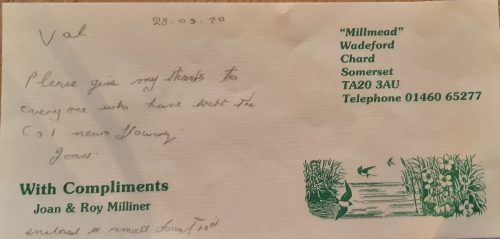 28.03.20
Val.
Please give my thanks to
everyone who have kept the
Cat news flowing.
Joan.
"Millmead"
Wadeford
Chard
Somerset
TA20 3AU
Telephone 01460 65277
With Compliments
Joan & Roy Milliner
enclosed a small donation